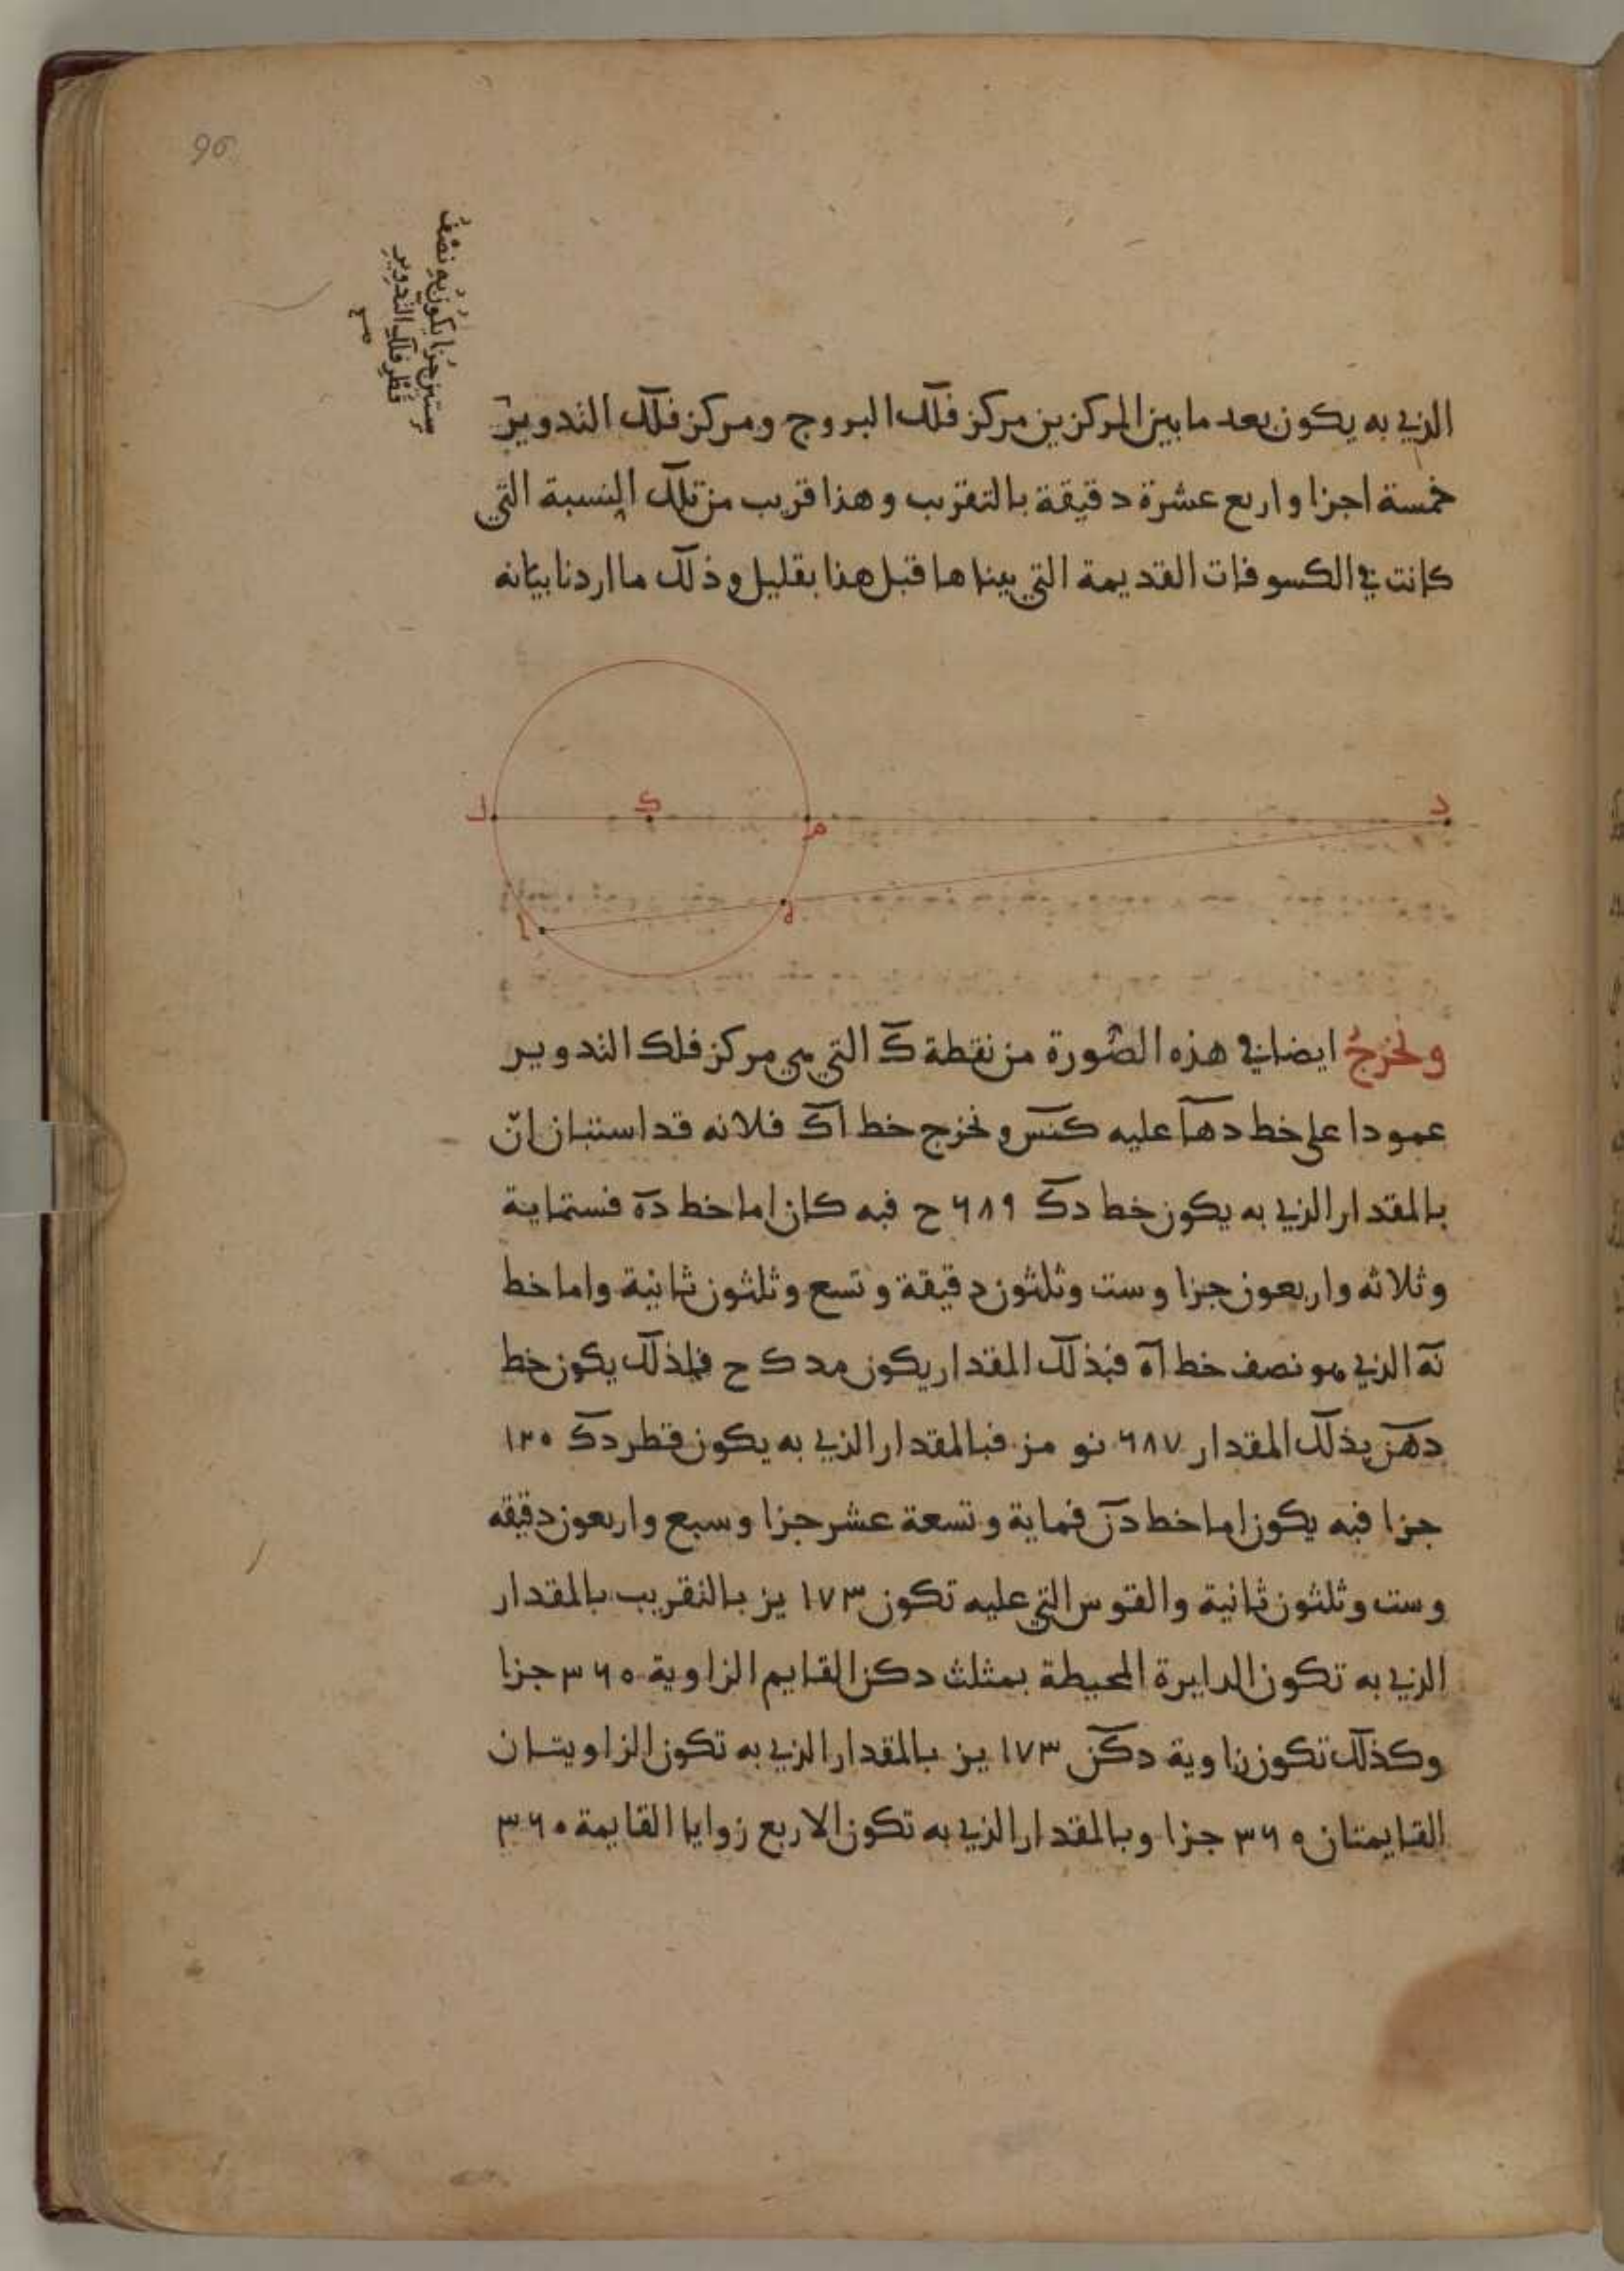 96
ستين جزا يكون به نصف
قطر فلك التدوير
صح
الذي به يكون بعد ما بين المركزين مركز فلك البروج ومركز فلك التدوير
خمسة اجزا واربع عشرة دقيقة بالتقريب وهذا قريب من تلك النسبة التي
كانت في الكسوفات القديمة التي بيناها قبل هذا بقليل وذلك ما اردنا بيانه
د
م
ك
ل
ه
ا
ولنخرج ايضا في هذه الصورة من نقطة ك التي هي مركز فلك التدوير
عمودا على خط دها عليه كنس ونخرج خط اك فلانه قد استبان ان
بالمقدار الذي به يكون خط دك ٦٨٩ ح فبه كان اما خط ده فستماية
وثلاثه واربعون جزا وست وثلثون دقيقة وتسع وثلثون ثانية واما خط
نه الذي هو نصف خط اه فبذلك المقدار يكون مد ك ح فلذلك يكون خط
دهن بذلك المقدار ٦٨٧ نو مز فبالمقدار الذي به يكون قطر دك ١٢٠
جزا فبه يكون اما خط دن فماية وتسعة عشر جزا وسبع واربعون دقيقه
وست وثلثون ثانية والقوس التي عليه تكون ١٧٣ يز بالتقريب بالمقدار
الذي به تكون الدايرة المحيطة بمثلث دكن القايم الزاوية ٣٦٠ جزا
وكذلك تكون زاوية دكن ١٧٣ يز بالمقدار الذي به تكون الزاويتان
القايمتان ٣٦٠ جزا وبالمقدار الذي به تكون الاربع زوايا القايمة ٣٦٠